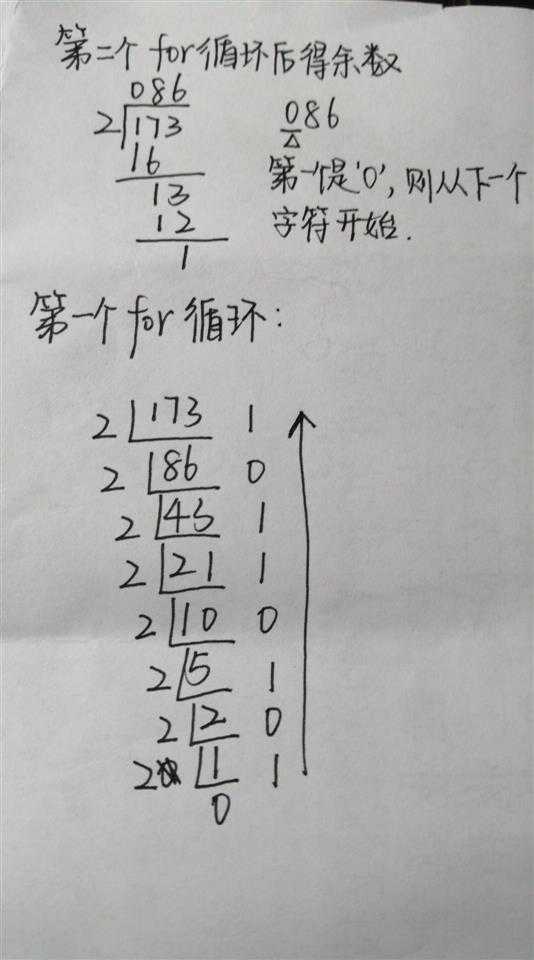 第二个for循环后得余数
086
2 173 086
16
第一个是'0',则从下一个
13
12 字符开始.
1
第一个for循环:
2 173 1
2 86 0
2 43 1
2 21 1
2 10 0
2 5 1
2 2 0
2 1 1
0